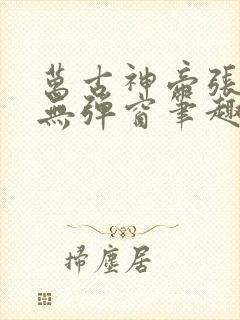 萬古神帝張
無彈窗筆趣
掃塵居